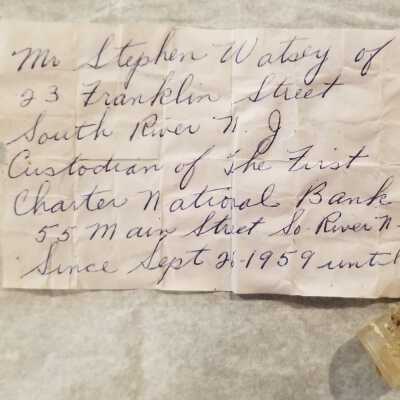 Mr Stephen Watsey of
23 Franklin Street
South River N. J.
Custodian of The First
Charter National Bank
55 Main Street So. River N-
Since Sept 2-1959 until